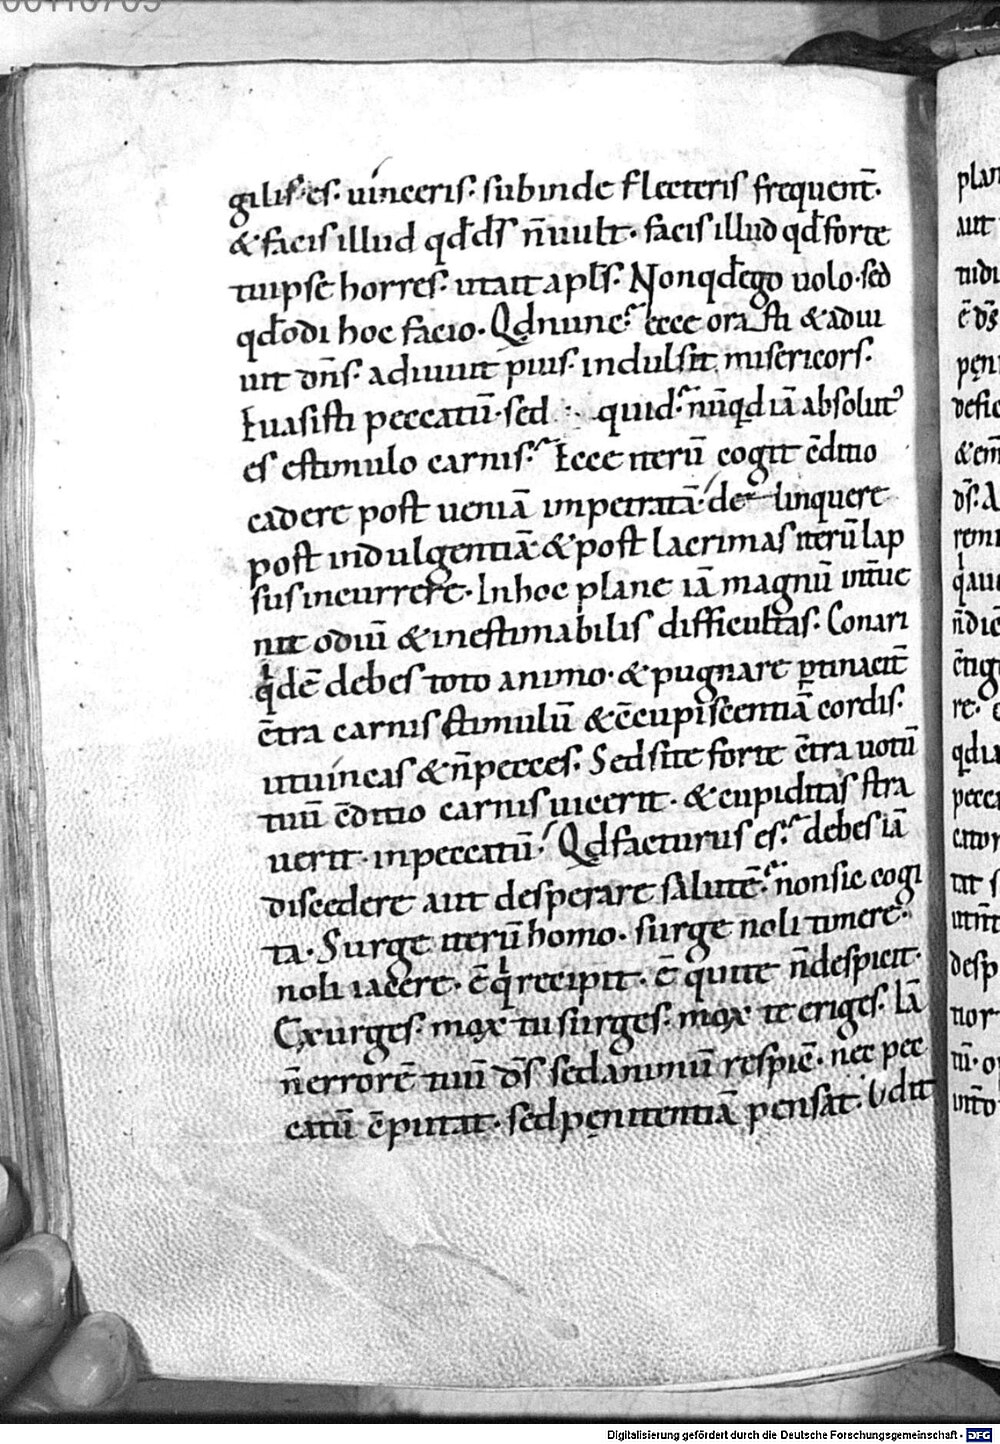 gilis·es· uinceris· subinde flecteris frequent̄·
& facis illud qđ ds̄ n̄ uult· facis illud qđ forte
tu ipse horres· ut ait apłs· Non qđ ego uolo· sed
qđ odi hoc facio· Qđ nunc? ecce orasti & adiu
uit dn̄s· adiuuit pius· indulsit misericors·
Euasisti peccatū· sed quid? nūqđ iā absolut⁹
es estimulo carnis? Ecce iterū cogit c̄ditio
cadere post ueniā impetratā· de linquere
post indulgentiā & post lacrimas iterū lap
sus incurrere· In hoc plane iā magnū inūe
nit odiū & inestimabilis difficultas· Conari
qidē debes toto animo· & pugnare ptinacit̄
c̄tra carnis stimulū & c̄cupiscentiā cordis·
ut uincas & n̄ pecces· Sed si te forte c̄tra uotū
tuū c̄ditio carnis uicerit· & cupiditas stra
uerit· in peccatū· Qđ facturus es? debes iā
discedere aut desperare salutē? non sic cogi
ta· Surge iterū homo· surge noli timere·
noli iacere· ē qi recipit· ē qui te n̄ despicit·
Exurges· mox tu surges· mox te eriges· Iā
n̄ errorē tuū ds̄ sed animū respic̄· nec pec
catū c̄putat· sed penitentiā pensat· Vdit
plan
aut
tudi
ē ds̄
peni
defic
& em̄
ds̄· A
remi
n̄ dic
c̄tig
re·
qđ ia
pecca
cator
tat s
desp
nor
tū· o
Digitalisierung gefördert durch die Deutsche Forschungsgemeinschaft - DFG